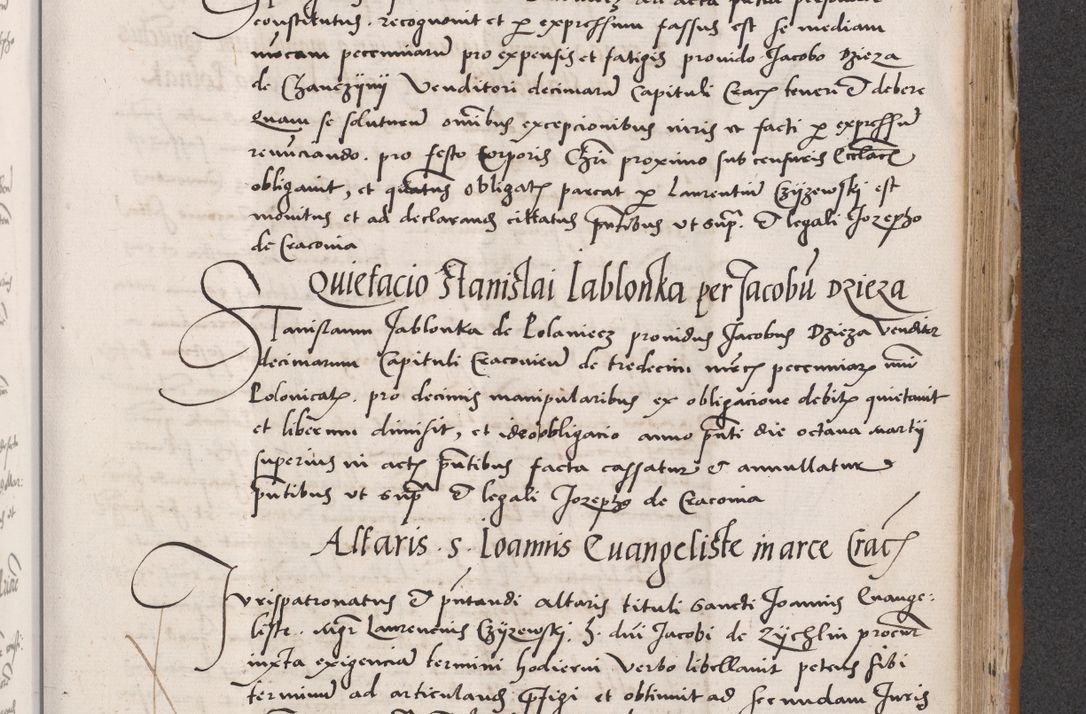 constitutus recognovit et p expressum fassus est se mediam
pecuniarum pro expensis et fatigis provido Jacobo Dzieza
de Venditori decimarum Capituli Crac teneri & debere
Quam se soluturum omibus excepcionibus iuris et facti p expressum
renunciando pro festo Corporis Cristi proximo sub censuris Eccl
obligavit, et quatenus obligat pareat p Laurentium Czyzewskj est
monitus et ad declarand cittatus pntibus ut sup & legali Jozepho
de Cracovia
Quietacio Stanislai Iablonka per Jacobum Dzieza
Stanislaum Jablonka de Polaniecz providus Jacobus Dzieza Venditor
decimarum Capituli Cracovien de tredecim mrcs pecuniar
Polonicat pro decimis manipularibus ex obligacione debit quietavit
et liberum dimisit, et ideo obligacio anno pnti die octava martij
superius in actis pntibus facta cassatur & annullatur
pntibus ut sup & legali Jozepho de Cracovia
Altaris S. Ioannis Evangeliste in arce Crac
Jurispatronatus & pntandi altaris tituli Sancti Joannis Evange:
liste Mgr Laurencius Czyzewskj, Jacobi de Zychlin procur
iuxta exigenciam termini hodierni verbo libellavit petens sibi
terminum ad articuland pfigi et obtinuit ad secundam Juris